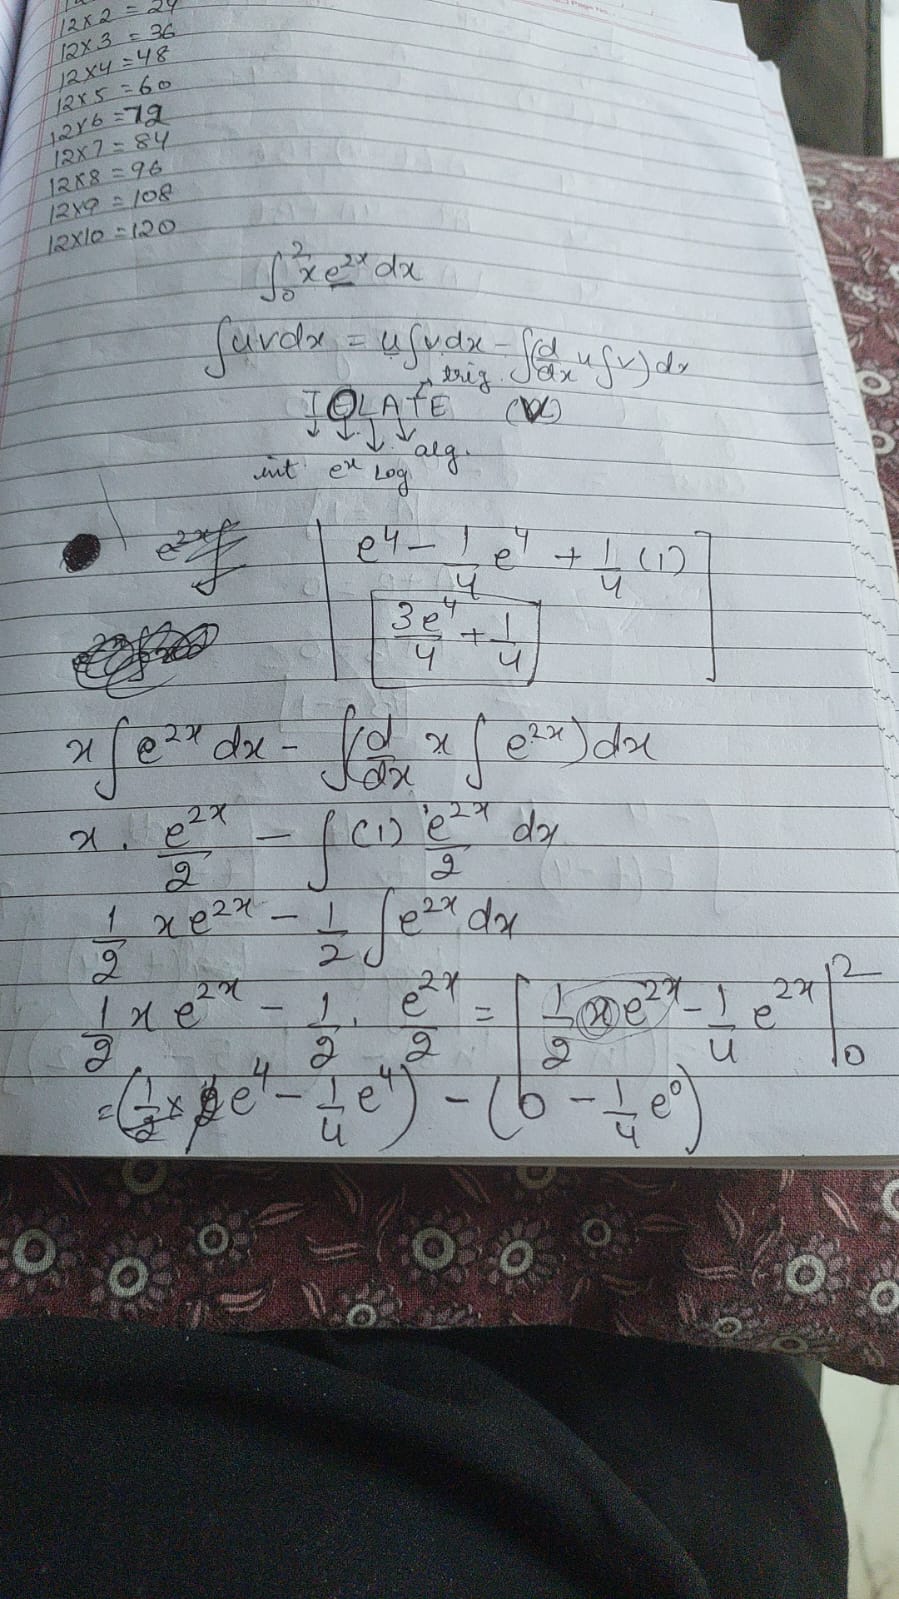 12x2 = 24
12x3 = 36
12x4 = 48
12x5 = 60
12x6 = 72
12x7 = 84
12x8 = 96
12x9 = 108
12x10 = 120
∫₀² x e^2x dx
∫uvdx = u∫vdx - ∫(d/dx u∫v)dx
trig.
I LATE
alg.
int e^x Log
e^2x∫
e^4 - 1/4 e^4 + 1/4 (1)
3e^4/4 + 1/4
x∫e^2x dx - ∫(d/dx x ∫e^2x)dx
x . e^2x/2 - ∫(1) e^2x/2 dx
1/2 xe^2x - 1/2 ∫e^2x dx
1/2 x e^2x - 1/2 . e^2x/2 = [1/2 x e^2x - 1/4 e^2x|₀²
= (1/2 x 2e^4 - 1/4 e^4) - (0 - 1/4 e^0)